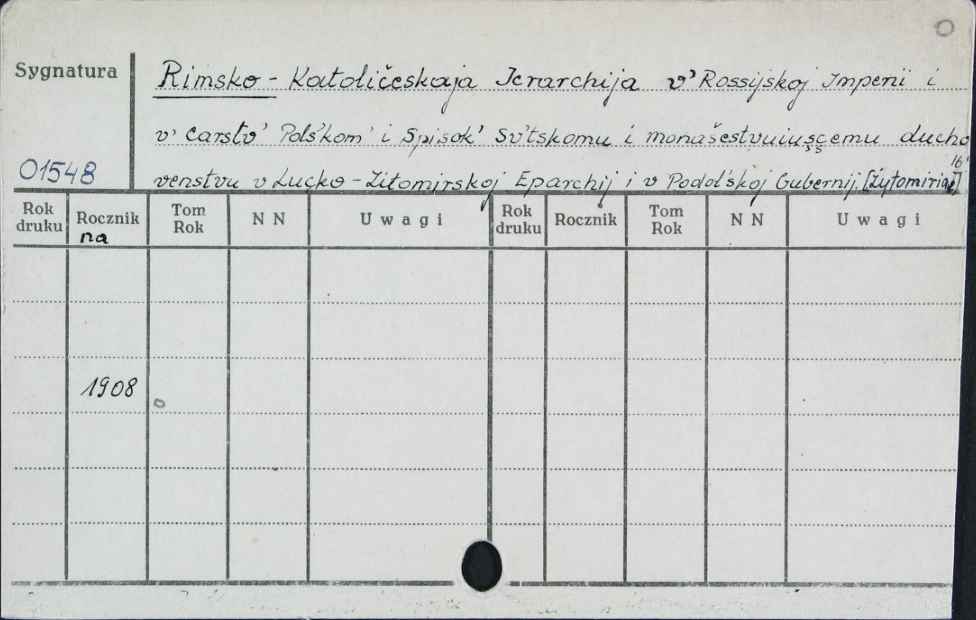 0
Sygnatura
Rimsko-Katoličeskaja Ierarchija v' Rossijskoj Imperii i
v' carstv' Polśkom' i Spisok' Sv'tskomu i monašestvuiuşçemu ducho
01548
16°
venstvu v Lucko-Žitomirskoj Eparchij i v Podolśkoj Gubernij
Rok druku
Rocznik na
Tom Rok
N N
Uwagi
Rok druku
Rocznik
Tom Rok
N N
Uwagi
1908
0